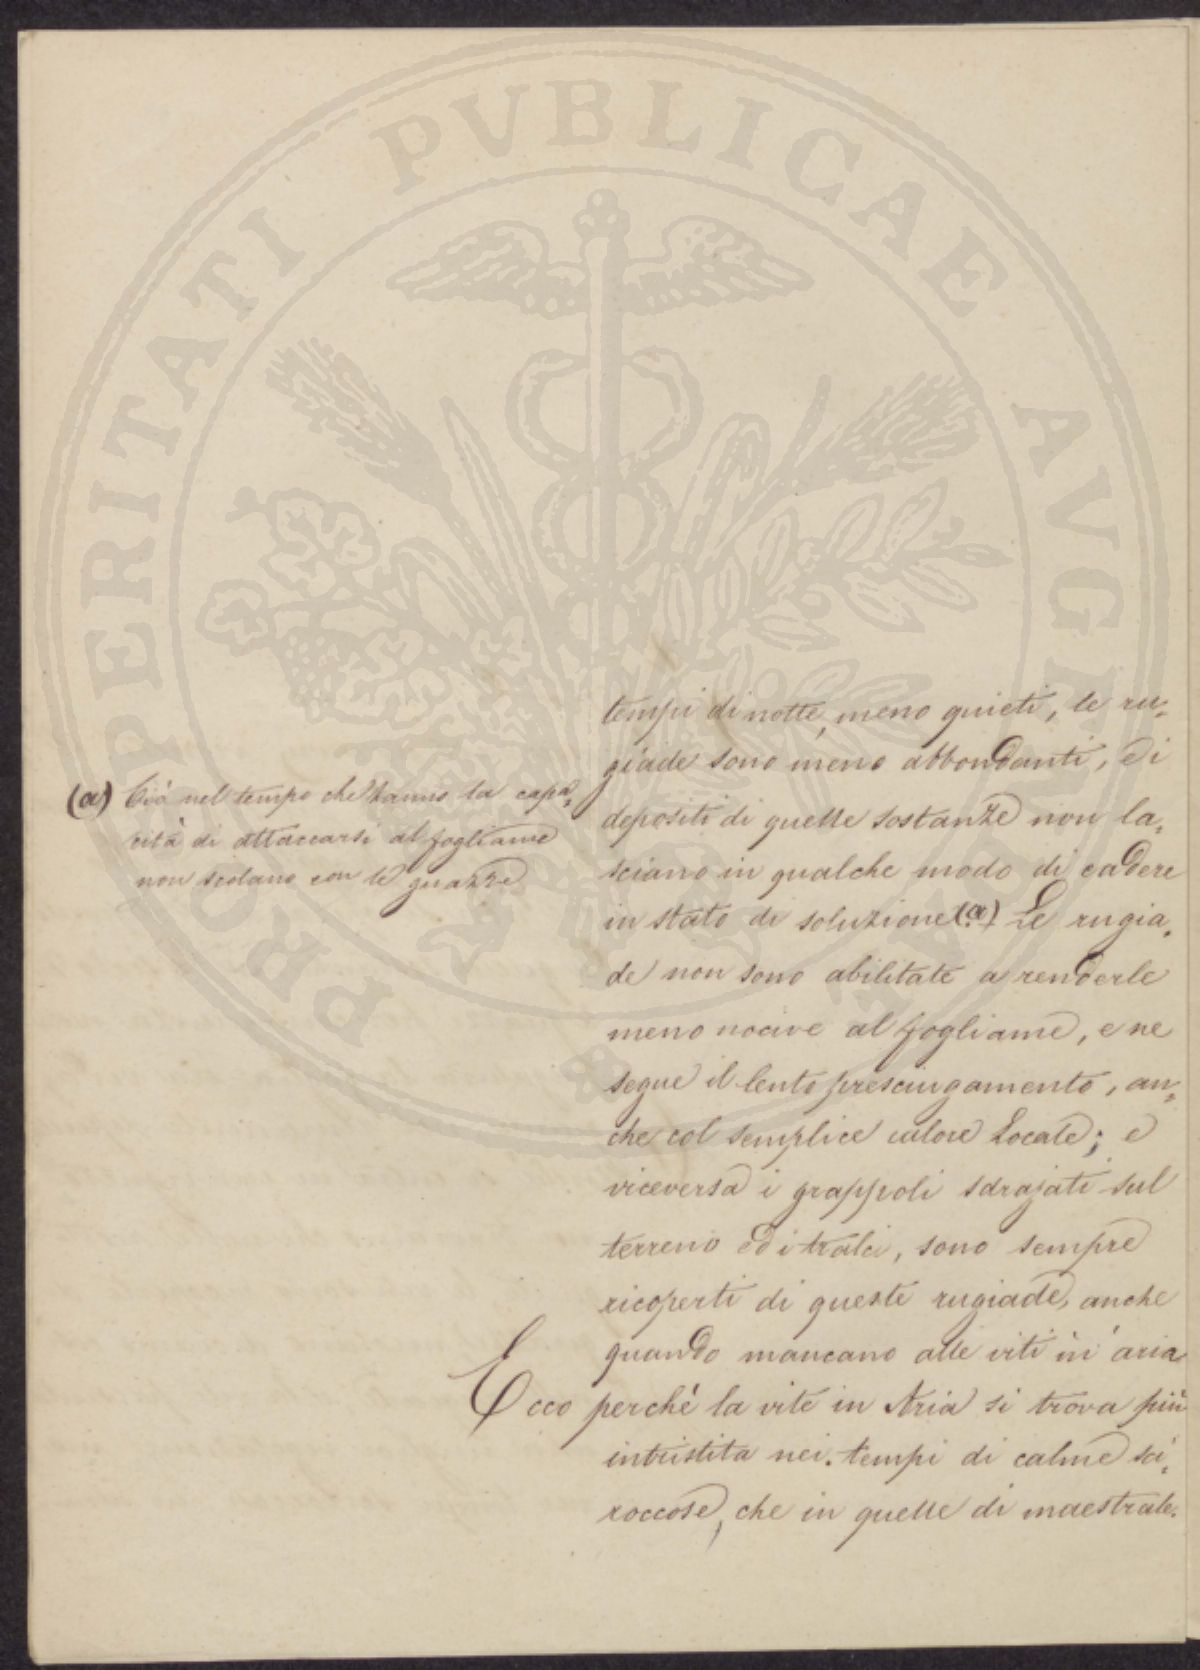 PROSPERITATI PVBLICAE AVGENDAE
tempi di notte, meno quieti, le ru=
giade sono meno abbondanti, ed i
depositi di quelle sostanze non la=
sciano in qualche modo di cadere
in stato di soluzione (a) Le rugia=
de non sono abilitate a renderle
meno nocive al fogliame, e ne
segue il lento presciugamento, an=
che col semplice calore locale; e
viceversa i grappoli sdrajati sul
terreno ed i tralci, sono sempre
ricoperti di queste rugiade, anche
quando mancano alle viti in aria
Ecco perché la vite in Aria si trova più
intristita nei tempi di calme sci=
roccose, che in quelle di maestrale.
(a) Ciò nel tempo che hanno la capa=
cità di attaccarsi al fogliame
non scolano con le guazze